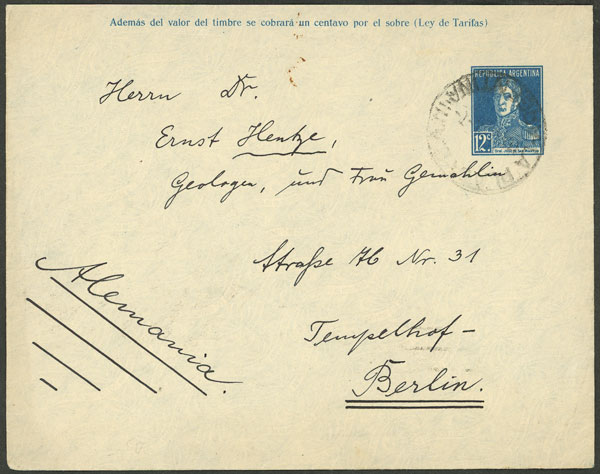 Además del valor del timbre se cobrará un centavo por el sobre (Ley de Tarifas)
REPUBLICA ARGENTINA
12c
Herrn Dr.
Ernst Hentze,
Geologen, und Frau Gemahlin
Straße 76 Nr. 31
Tempelhof-
Berlin.
Alemania.